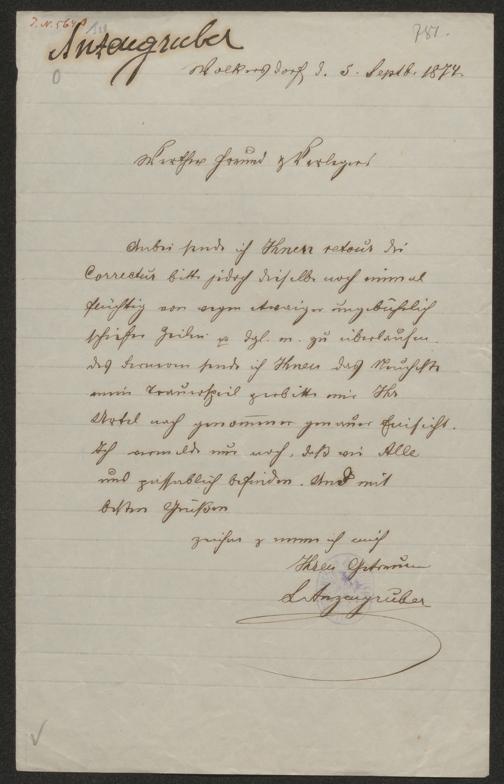 J.N. 5640
781.
Anzengruber
Wolkersdorf, d. 5. Septb. 1874.
Werther Freund & Verleger
Anbei sende ich Ihnen retour die
Correctur bitte jedoch dieselbe noch einmal
flüchtig von wegen etwaiger ungebührlich
schiefer Zeilen u. dgl. m. zu überlaufen.
des sende ich Ihnen das
mein Trauerspiel erbitte mir Ihr
Urteil nach genommener genauer Einsicht.
Ich vermelde nur noch, daß wir Alle
uns passablich befinden. Und mit
besten Grüßen
zeichne & nenne ich mich
Ihren Getreuen
LAnzengruber